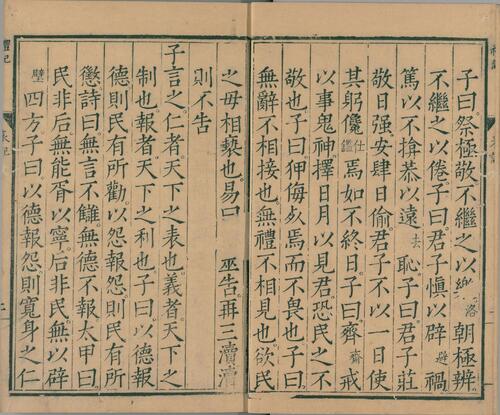 子曰祭極敬不繼之以樂洛朝極辨
不繼之以倦子曰君子慎以辟避禍
篤以不揜恭以遠去恥子曰君子莊
敬日强安肆日偷君子不以一日使
其躬儳仕鑑焉如不終日子曰齊齋戒
以事鬼神擇日月以見君恐民之不
敬也子曰狎侮死焉而不畏也子曰
無辭不相接也無禮不相見也欲民
之毋相褻也易曰 告再三瀆瀆
則不告
子言之仁者天下之表也義者天下之
制也報者天下之利也子曰以德報
德則民有所勸以怨報怨則民有所
懲詩曰無言不讎無德不報太甲曰
民非后無能胥以寧后非民無以辟
璧四方子曰以德報怨則寬身之仁
禮記